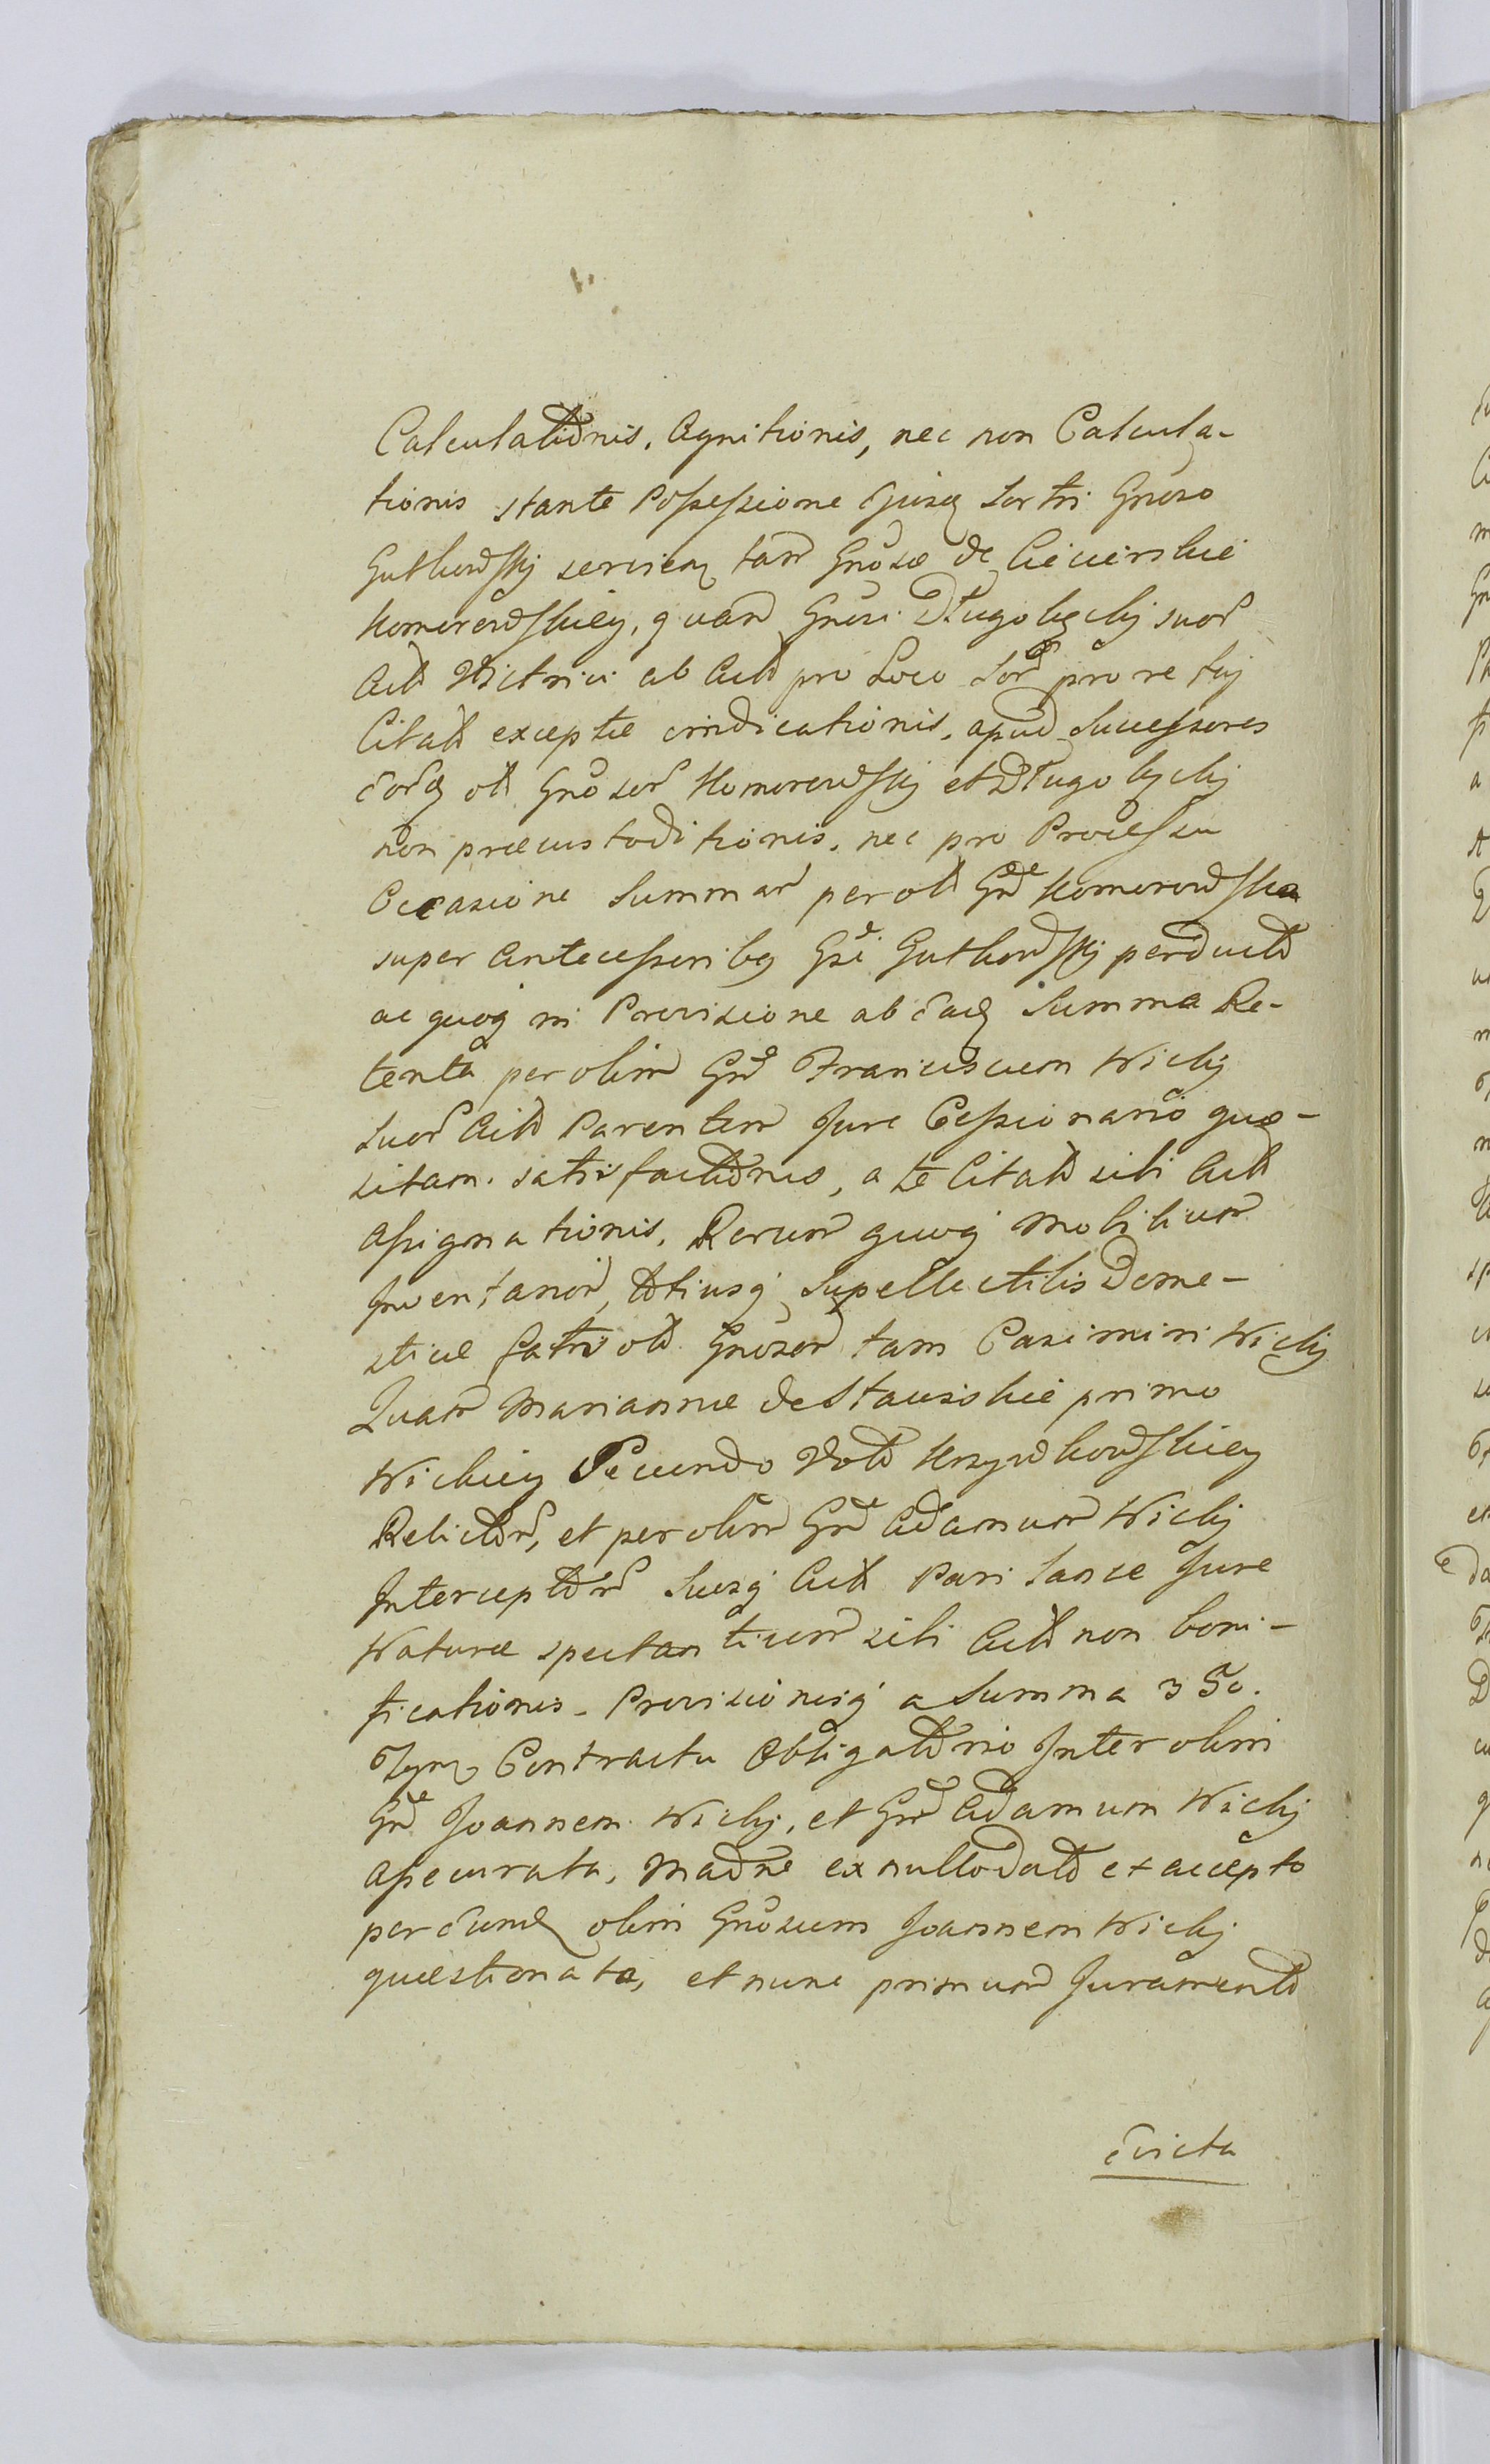 Calculationis, Agnitionis, nec non Calcula-
tionis stante Possessione Ejusq sortis Gnoso
Gutkowskij servien tam Gnosæ de Ciecierskie
Komorowskiey, quam Gnosi Długołęckij suor
Actt Victrici ab Actt pro Loco sor pro re
Citatt exceptæ vindicationis, apud Successores
eorq ott Gnosor Komorowskij et Długołęckij
non præcustoditionis, nec pro Processu
Occasione Summar per ott Gnd Komorowska
super Antecessoribq Gsi Gutkowskij perductt
ac quoq in Provisione ab eadq Summa Re-
tenta per olim Gnd Franciscum Wickij
suor Actt Parentem Jure Cessionario quæ-
sitam. satisfactionis, a te Citatt sibi Actt
Assignationis, Rerum quoq Mobilium
Inventarior, ttiusq Supellectilis Dome-
sticæ ott Gnosor tam Casimiri Wickij
Quam Mariannæ de Stawiskie primo
Wickiey Secundo Vott Krzywkowskiey
Relictor, et per olim Gnd Adamum Wickij
Interceptor Suisq Actt Pari Lance Jure
Naturæ spectantium sibi Actt non boni-
ficationis. Provisionisq a Summa 350.
Tyn Contractu Obligatorio Inter olim
Gnd Joannem Wickij, et Gnd Adamum Wickij
Assecurata, Madne ex nullo datt et accepto
per eund olim Gnosum Joannem Wickij
quæstionata, et nunc primum Juramentt
evicta